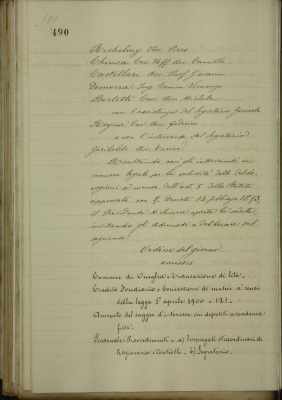 490
Michelini Avv. Piero
Chinea Cav. Uff. Avv. Camillo
Castellari Avv. Prof. Giovanni
Donvera Ing. Comm. Vincenzo
Bertetti Cav. Avv. Michele
con l'assistenza del Segretario Generale
Regina Cav. Avv. Federico
e con l'intervento del Segretario
Garibaldi Avv. Enrico
Risultando così gli intervenuti in
numero legale per la validità delle delibe-
razioni a mente dell'art. 5 dello Statuto
approvato con R. Decreto 13 febbraio
il Presidente dichiara aperta la seduta,
invitando gli Adunati a deliberare sul
seguente
Ordine del giorno
omissis
Comune di - Transazione di lite.
Credito Fondiario - Conversione di mutui a' sensi
della legge 1º aprile 1900 n. 121.
Aumento del saggio d'interesse sui depositi a scadenza
fissa.
Personale: Provvedimenti - a) Impiegati straordinari di
Ragioneria e Controllo - b) Segretario.